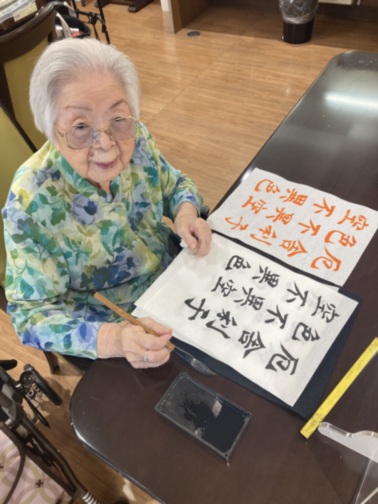 厄舎利子
色不異空
空不異色
厄舎利子
色不異空
空不異色